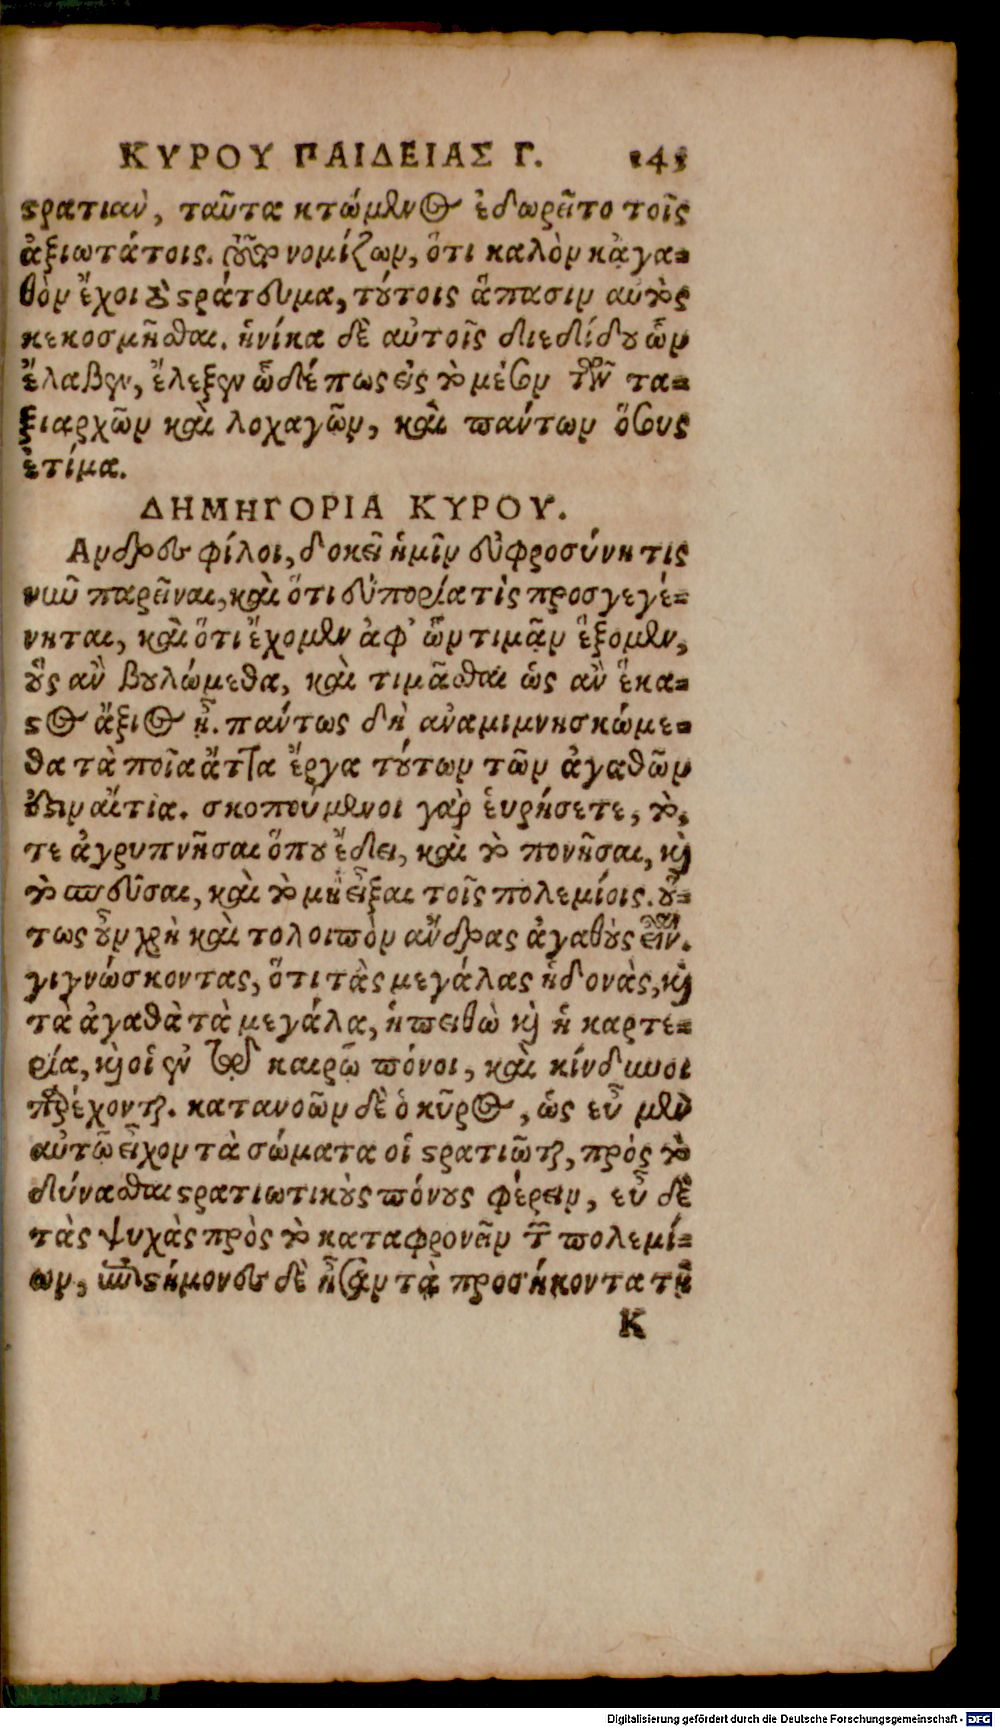 ΚΥΡΟΥ ΠΑΙΔΕΙΑΣ Γ. 145
στρατιαὶ, ταῦτα κτώμενος ἐδωρεῖτο τοῖς
ἀξιωτάτοις. νομίζων, ὅτι καλὸν κἀγα-
θὸν ἔχοι τὸ στράτευμα, τούτοις ἅπασιν αὐτὸς
κεκοσμῆσθαι. ἡνίκα δὲ αὐτοῖς διεδίδου ὧν
ἔλαβεν, ἔλεξεν ὧδέ πως εἰς τὸ μέσον τῶν τα-
ξιαρχῶν καὶ λοχαγῶν, καὶ πάντων ὅσους
ἐτίμα.
ΔΗΜΗΓΟΡΙΑ ΚΥΡΟΥ.
Ανδρες φίλοι, δοκεῖ ἡμῖν εὐφροσύνη τις
νῦν παρεῖναι, καὶ ὅτι εὐπορία τὶς προσγεγέ-
νηται, καὶ ὅτι ἔχομεν ἀφ' ὧν τιμᾶν ἕξομεν,
οὓς ἂν βουλώμεθα, καὶ τιμᾶσθαι ὡς ἂν ἕκα-
στος ἄξιος ᾖ. πάντως δὴ ἀναμιμνησκώμε-
θα τὰ ποῖα ἄττα ἔργα τούτων τῶν ἀγαθῶν
ἐστιν αἴτια. σκοπούμενοι γὰρ εὑρήσετε, τὸ,
τε ἀγρυπνῆσαι ὅπου ἔδει, καὶ τὸ πονῆσαι, καὶ
τὸ σπεῦσαι, καὶ τὸ μὴ εἶξαι τοῖς πολεμίοις. οὕ-
τως οὖν χρὴ καὶ τολοιπὸν ἄνδρας ἀγαθοὺς εἶναι.
γιγνώσκοντας, ὅτι τὰς μεγάλας ἡδονὰς, καὶ
τὰ ἀγαθὰ τὰ μεγάλα, ἡ πειθὼ καὶ ἡ καρτε-
ρία, καὶ οἱ ἐν τῷ καιρῷ πόνοι, καὶ κίνδυνοι
παρέχονται. κατανοῶν δὲ ὁ κῦρος, ὡς εὖ μὲν
αὐτῷ εἶχον τὰ σώματα οἱ στρατιῶται, πρὸς τὸ
δύνασθαι στρατιωτικοὺς πόνους φέρειν, εὖ δὲ
τὰς ψυχὰς πρὸς τὸ καταφρονεῖν τῶν πολεμί-
ων, ἐπιστήμονες δὲ ἦσαν τὰ προσήκοντα τῇ
K
Digitalisierung gefördert durch die Deutsche Forschungsgemeinschaft - DFG